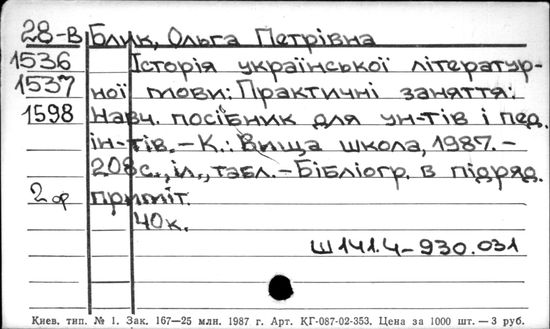 28-В Блик, Ольга Петрівна
1536 Історія української літератур-
1537 ної мови: Практичні заняття:
1598 Навч. посібник для ун-тів і пед.
ін-тів. – К.: Вища школа, 1987. –
208с., іл., табл. – Бібліогр. в підряд.
2 ф приміт.
40к.
Ш141.4-930.031
Киев. тип. № 1. Зак. 167—25 млн. 1987 г. Арт. КГ-087-02-353. Цена за 1000 шт. — 3 руб.